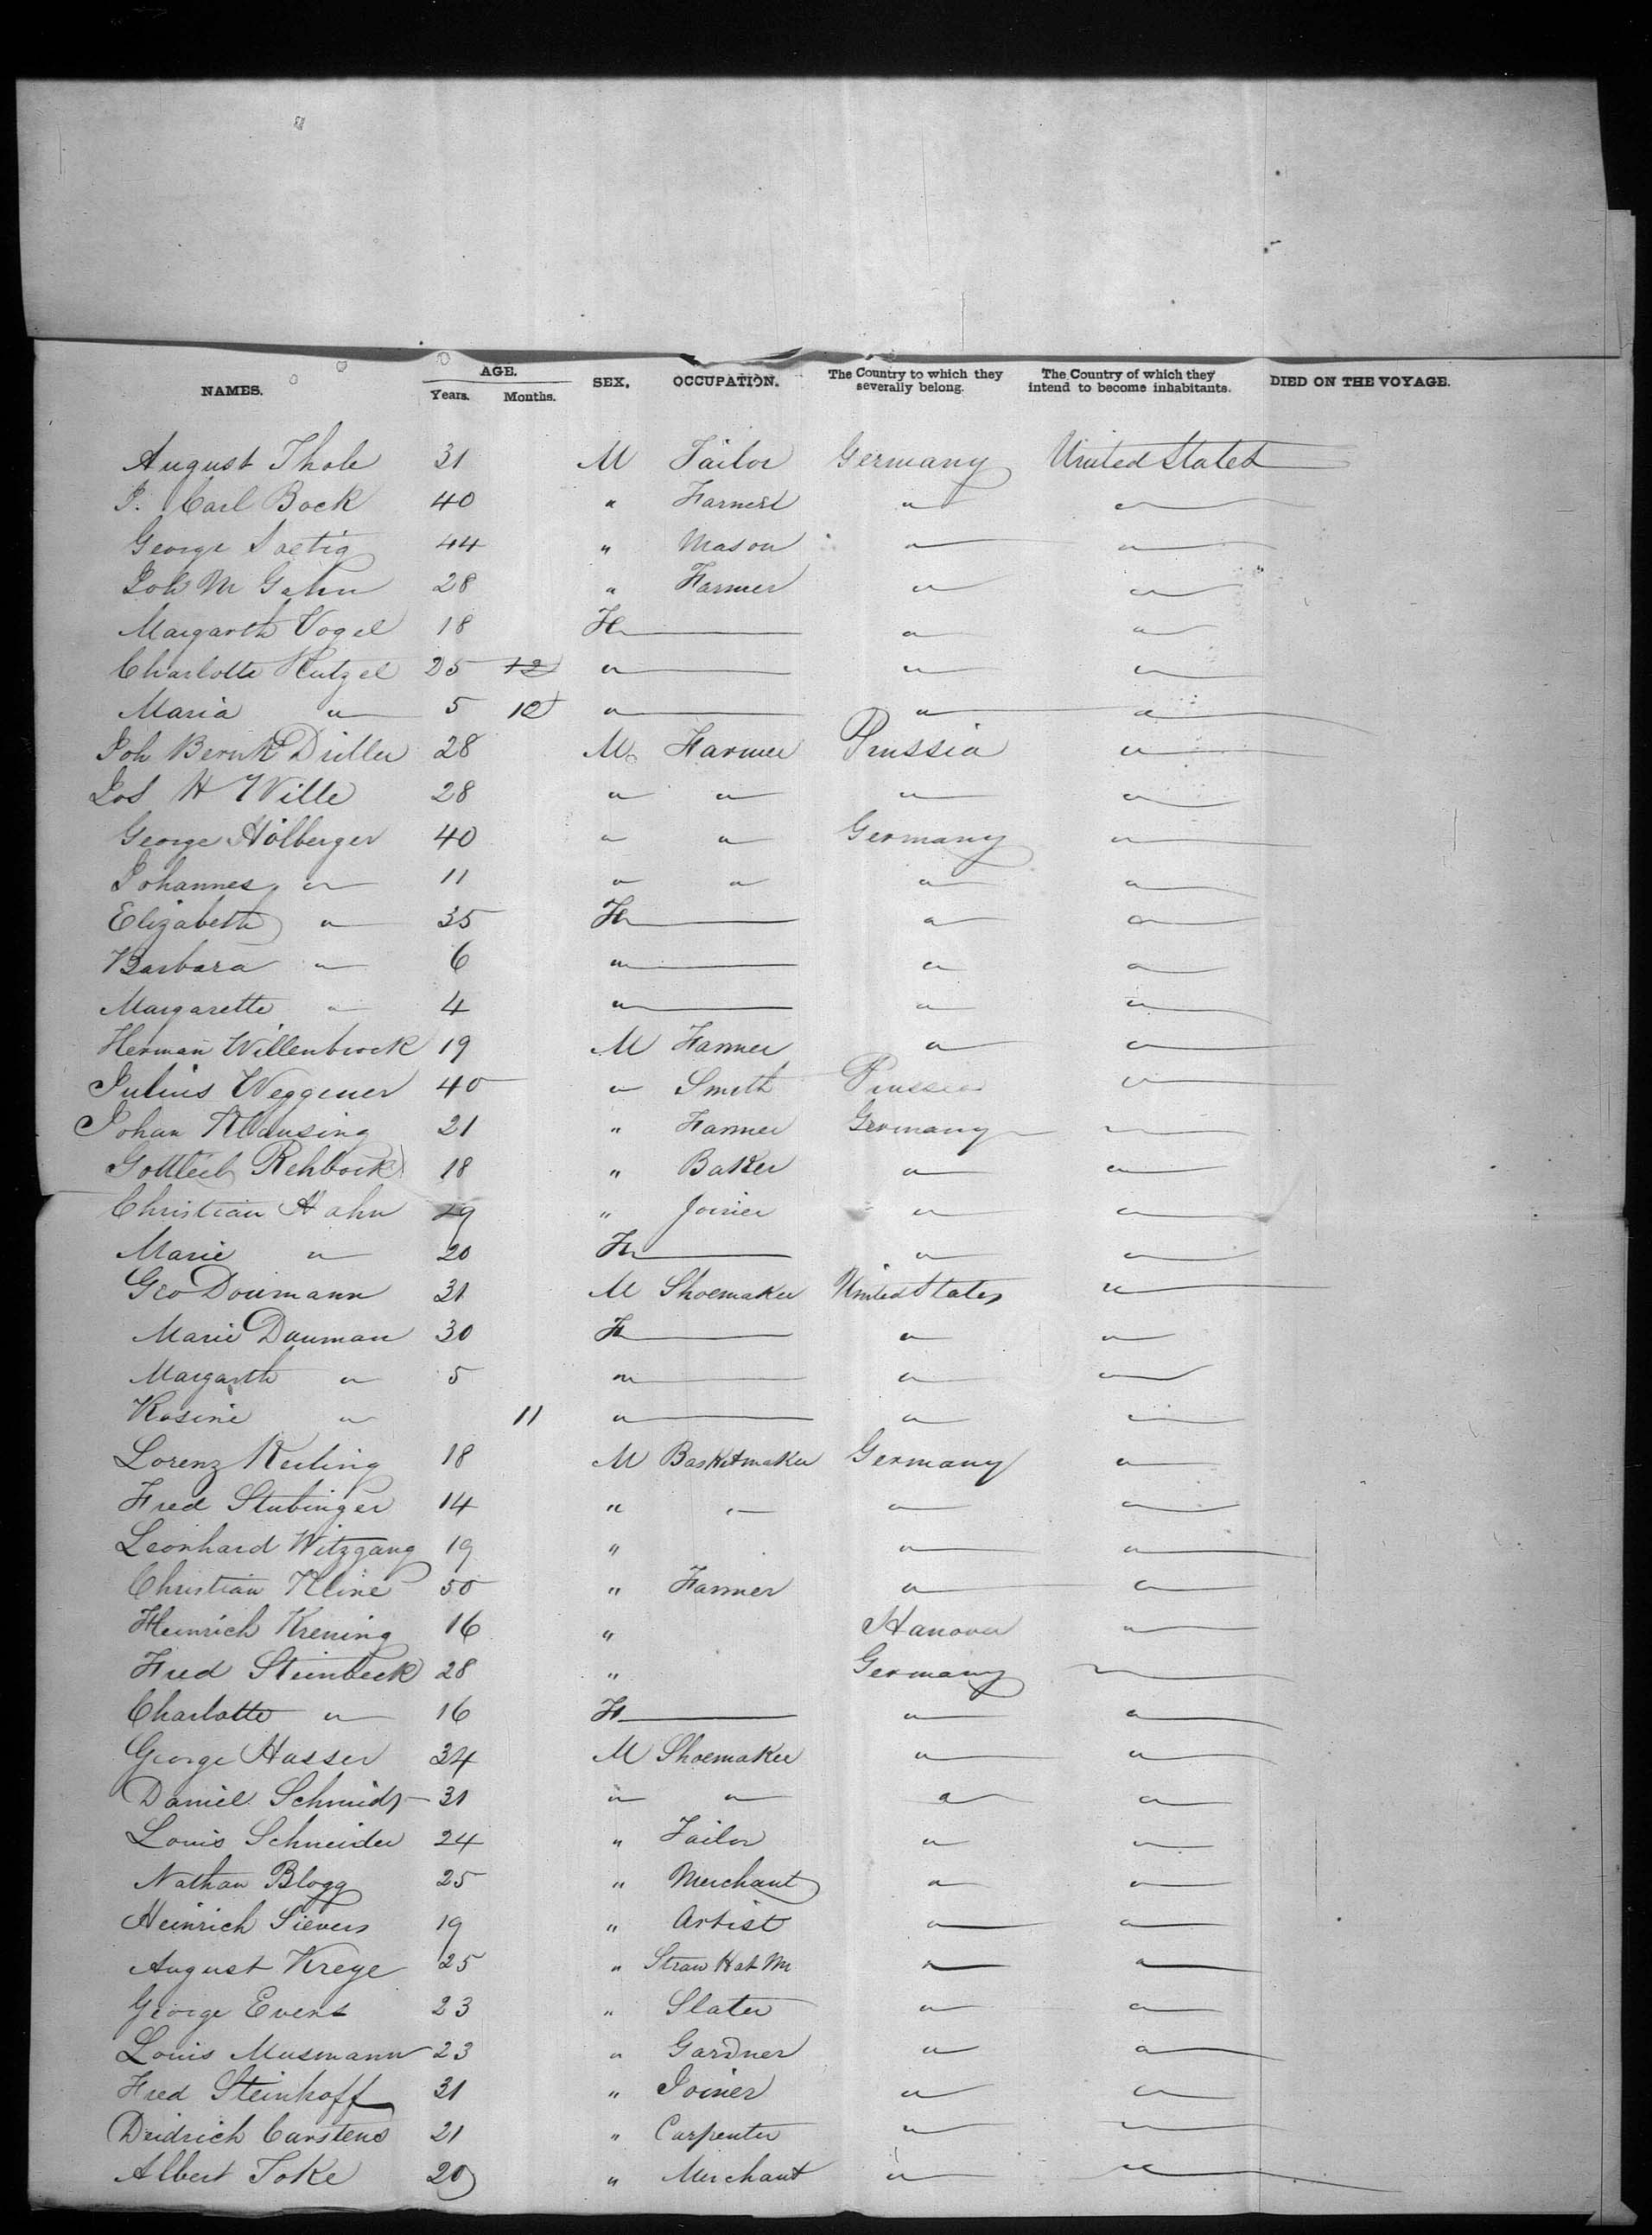 NAMES. AGE. Years. Months. SEX. OCCUPATION. The Country to which they severally belong. The Country of which they intend to become inhabitants. DIED ON THE VOYAGE.
August Thole 31 M Tailor Germany United States
J. Carl Bock 40 " Farmer " "
George Saetig 44 " Mason " "
Joh M Gahn 28 " Farmer " "
Margarth Vogel 18 F " "
Charlotte Hutzel 25 12 " " "
Maria " 5 10 " " "
Joh Bernh Driller 28 M Farmer Prussia "
Jos H Wille 28 " " " "
George Holberger 40 " " Germany "
Johannes " 11 " " " "
Elizabeth " 35 F " "
Barbara " 6 " " "
Margarette " 4 " " "
Herman Willenbrock 19 M Farmer " "
Julius Weggener 40 " Smith Prussia "
Johan Klausing 21 " Farmer Germany "
Gottlieb Rehbock 18 " Baker " "
Christian Hahn 29 " Joiner " "
Marie " 20 F " "
Geo Doumann 31 M Shoemaker United States "
Marie Dauman 30 F " "
Margarth " 5 " " "
Rosine " 11 " " "
Lorenz Keiling 18 M Basketmaker Germany "
Fred Stubinger 14 " " " "
Leonhard Witzgang 19 " " "
Christian Kline 50 " Farmer " "
Heinrich Krening 16 " Hanover "
Fred Steinbeck 28 " Germany "
Charlotte " 16 F " "
George Hasser 34 M Shoemaker " "
Daniel Schmidt 31 " " " "
Louis Schneider 24 " Tailor " "
Nathan Blogg 25 " Merchant " "
Heinrich Sievers 19 " Artist " "
August Kreye 25 " Straw Hat M " "
George Evers 23 " Slater " "
Louis Musmann 23 " Gardner " "
Fred Steinhoff 31 " Joiner " "
Deidrich Carstens 21 " Carpenter " "
Albert Toke 20 " Merchant " "